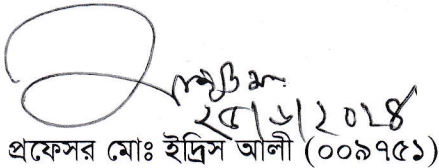 ২৫/৬/২০২৪
প্রফেসর মোঃ ইদ্রিস আলী (০০৯৭৫১)